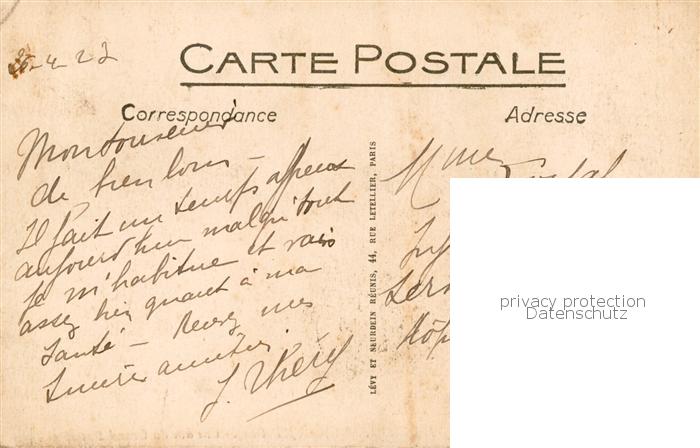 -4-27
CARTE POSTALE
Correspondance
Adresse
Mon souvenir
de bien loin –
Il fait un temps affreux
aujourd'hui malgré tout
je m'habitue et vais
assez bien quant à ma
santé – Recevez mes
sincères amitiés.
J. Théry
LÉVY ET NEURDEIN RÉUNIS, 44, RUE LETELLIER, PARIS
Mme
privacy protection
Datenschutz